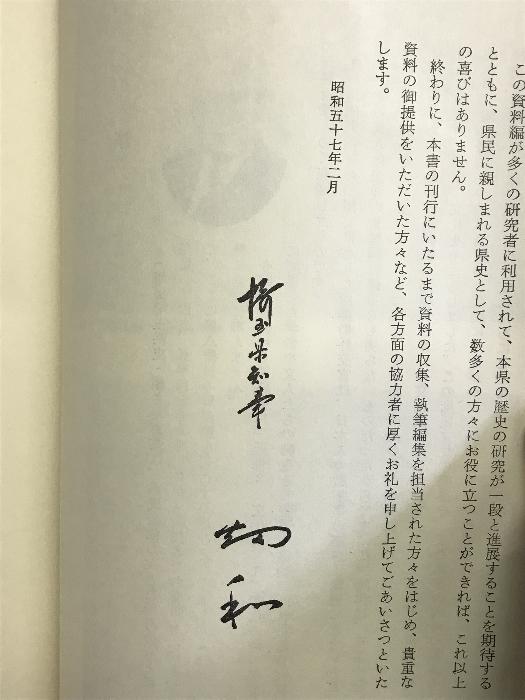 この資料編が多くの研究者に利用されて、本県の歴史の研究が一段と進展することを期待する
とともに、県民に親しまれる県史として、数多くの方々にお役に立つことができれば、これ以上
の喜びはありません。
終わりに、本書の刊行にいたるまで資料の収集、執筆編集を担当された方々をはじめ、貴重な
資料の御提供をいただいた方々など、各方面の協力者に厚くお礼を申し上げてごあいさつといた
します。
昭和五十七年二月
埼玉県知事
畑和